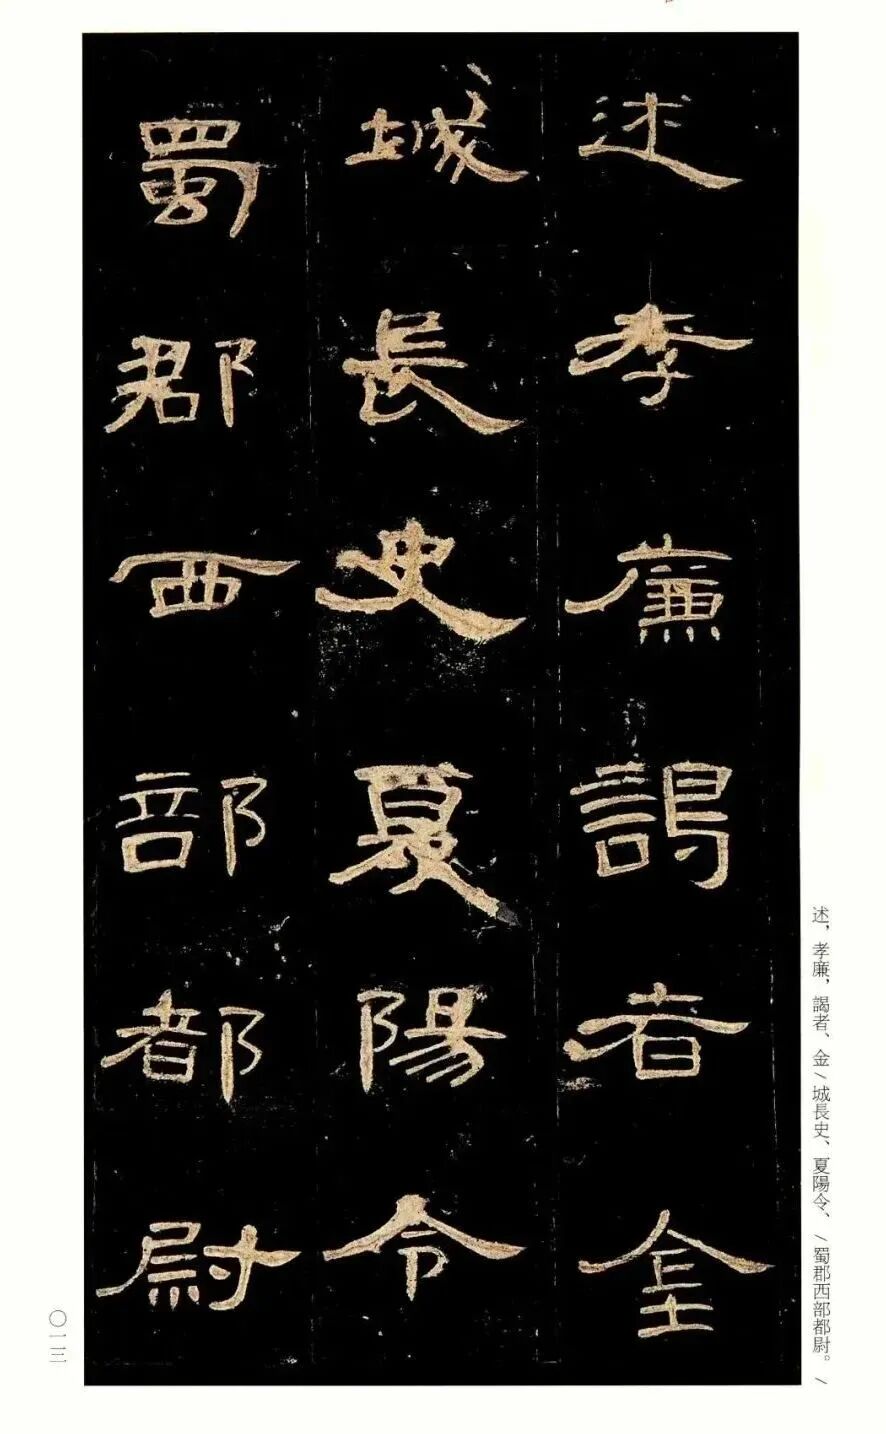 述孝廉謁者金
城長史夏陽令
蜀郡西部都尉
述，孝廉，謁者、金/城長史、夏陽令、/蜀郡西部都尉。/
〇一三